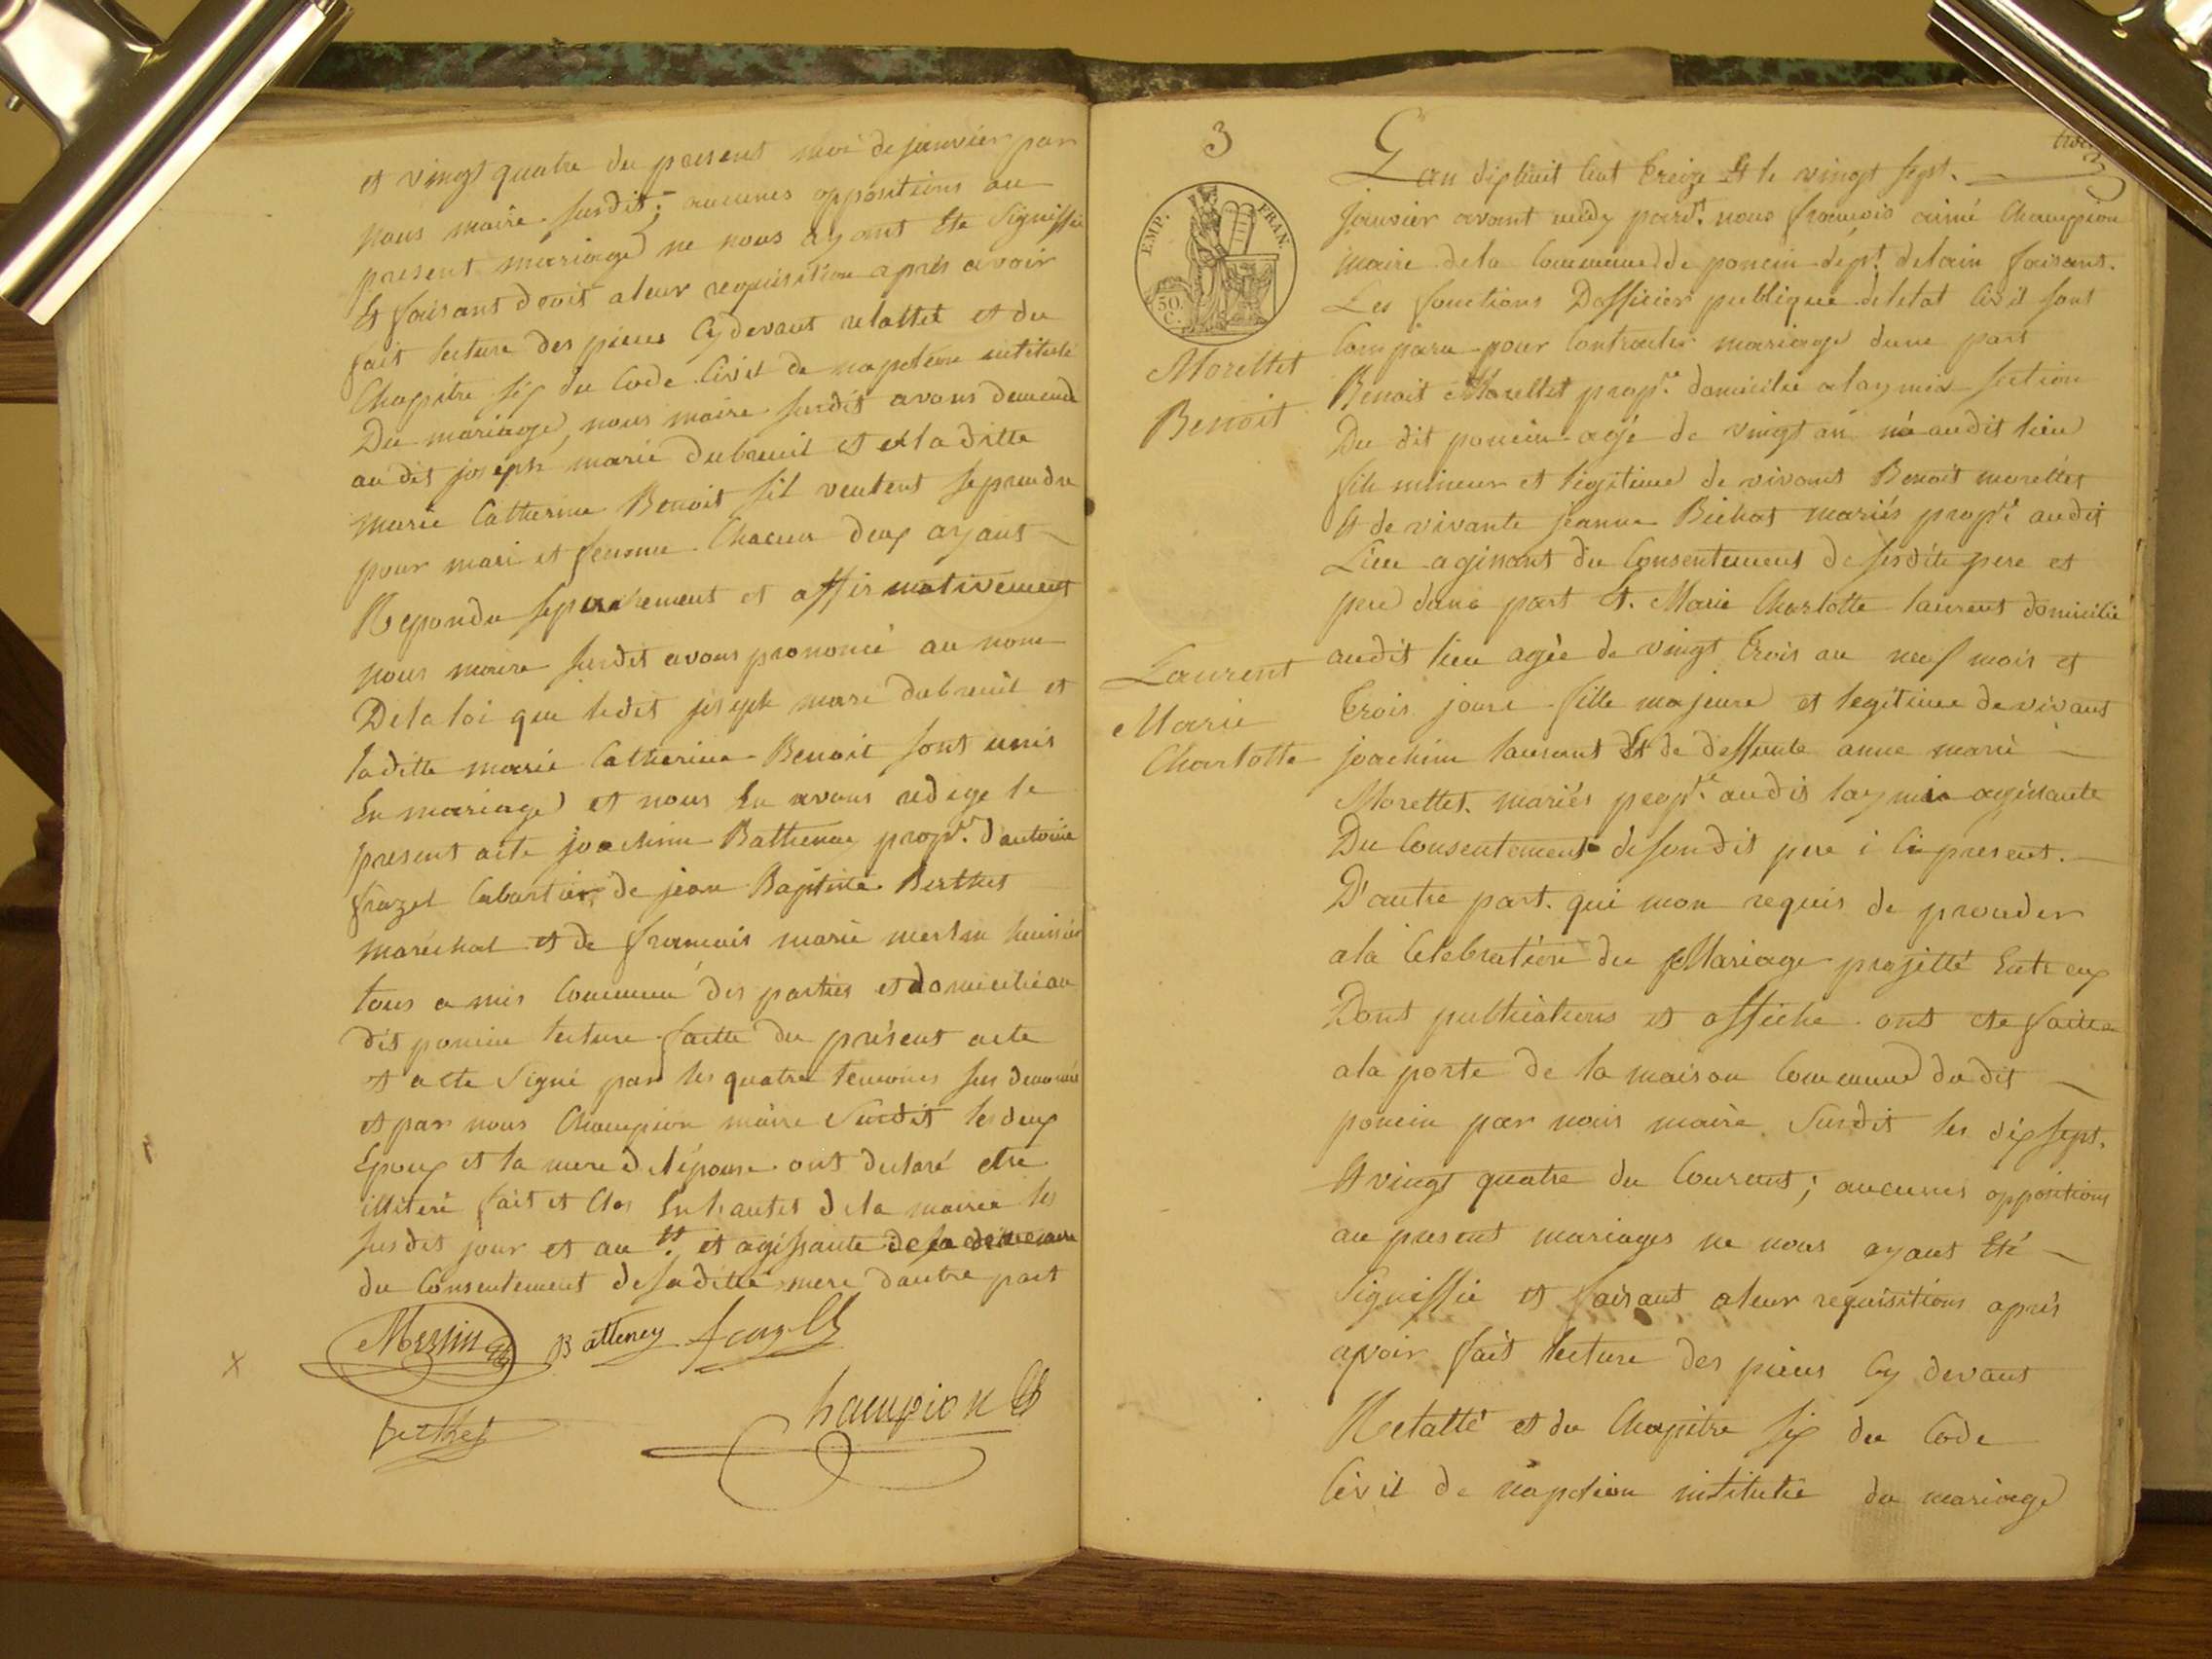 et vingt quatre du present moi de janvier par
nous maire susdit; aucunes oppositions au
present mariage ne nous ayant Ete Signiffié
Et faisant droit a leur requisition aprés avoir
fait lecture des pieces Cy devant relattet et du
Chapitre six du Code Civil de napoléon intitulé
Du mariage, nous maire susdit avons demandé
au dit joseph marie dubreuil et a la ditte
marie Catherine Benoit sil veulent se prendre
pour mari et femme Chacun deux ayant
Repondu separement et affirmativement
nous maire susdit avons prononcé au nom
De la loi que ledit joseph marie dubreuil et
laditte marie Catherine Benoit sont unis
En mariage et nous En avons redigé le
present acte joachim Battenay propre. dantoine
frazet Cabartier de jean Baptiste Berthet
maréchal et de francois marie merlin huissier
tous amis Commun des parties et domicilié au
dit poncin lecture faitte du présent acte
et a ete Signé par les quatre temoins sus denommé
et par nous Champion maire Susdit les deux
Epoux et la mere de lépouse ont declaré etre
illiteré fait et Clos En hautes de la mairie les
susdit jour et an Et et agissante de sa ditte mere
du Consentement de sa ditte mere dautre part
Merlin Batteney frazet
x
Berthet
Champion
3
EMP. FRAN.
50 C.
Morettet
Benoit
Laurent
Marie
Charlotte
3
Lan dix huit Cent treize Et le vingt sept.
Janvier avant midy pard.t nous francois aimé Champion
maire de la Commune de poncin dept. delain faisant.
Les fonctions Dofficier publique de letat Civil sont
Comparu pour Contracter mariage dune part
Benoit Morettet propre. domicilié a laymia section
Du dit poncin agé de vingt an né audit lieu
fils mineur et legitime de vivant Benoit morettet
Et de vivante jeanne Bichat mariés propre. audit
Lieu agissant du Consentement de sesdits pere et
pere dune part Et. Marie Charlotte laurent domicilié
audit lieu agée de vingt trois an neuf mois et
trois jours fille majeure et legitime de vivant
joachim laurent Et de deffunte anne marie
Morettet. mariés propre. audit laymia agissante
Du Consentement de son dit pere i Ci present.
D'autre part. qui mon requis de proceder
a la Celebration du Mariage projetté Entr eux
Dont publications et affiche ont ete faitte
a la porte de la maison Commune du dit
poncin par nous maire Susdit les dix sept.
Et vingt quatre du Courant; aucunes oppositions
au present mariages ne nous ayant Eté
Signiffié et faisant a leur requisitions aprés
avoir fait lecture des pieces Cy devant
Relatté et du Chapitre six du Code
Civil de napoléon intitulé du mariage